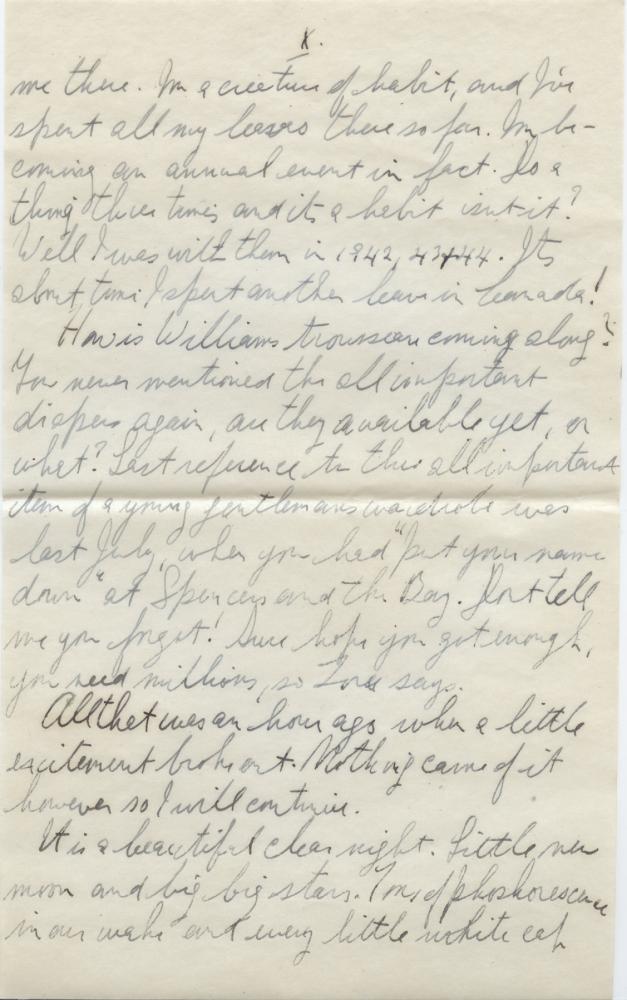 X.
me there. Im a creature of habit, and I've
spent all my leaves there so far. Im be-
coming an annual event in fact. Do a
thing three times and its a habit isnt it?
Well I was with them in 1942, 43+44. Its
about time I spent another leave in Canada!
How is Williams trousseau coming along?
You never mentioned the all important
diapers again, are they available yet, or
what? Last reference to this all important
item of a young gentlemans wardrobe was
last July, when you had "put your name
down" at Spencers and the Bay. Dont tell
me you forgot! Sure hope you got enough,
you need millions, so says.
All that was an hour ago when a little
excitement broke out. Nothing came of it
however so I will continue.
It is a beautiful clear night. Little new
moon and big big stars. Tons of phosphorescence
in our wake and every little white cap